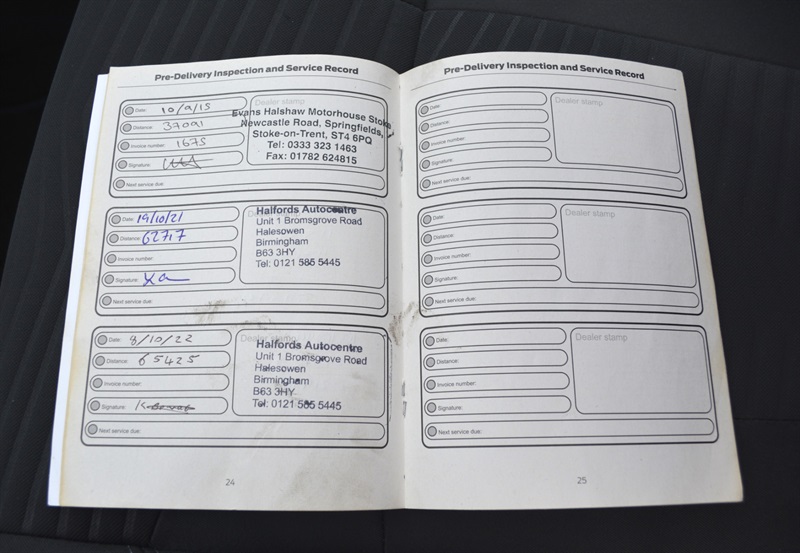 Pre-Delivery Inspection and Service Record
Date: 10/9/15
Distance: 37091
Invoice number: 1675
Signature:
Next service due:
Dealer stamp
Evans Halshaw Motorhouse Stoke
Newcastle Road, Springfields,
Stoke-on-Trent, ST4 6PQ
Tel: 0333 323 1463
Fax: 01782 624815
Date: 19/10/21
Distance: 62717
Invoice number:
Signature:
Next service due:
Halfords Autocentre
Unit 1 Bromsgrove Road
Halesowen
Birmingham
B63 3HY
Tel: 0121 585 5445
Date: 8/10/22
Distance: 65425
Invoice number:
Signature:
Next service due:
Dealer stamp
Halfords Autocentre
Unit 1 Bromsgrove Road
Halesowen
Birmingham
B63 3HY
Tel: 0121 585 5445
24
Pre-Delivery Inspection and Service Record
Date:
Distance:
Invoice number:
Signature:
Next service due:
Dealer stamp
Date:
Distance:
Invoice number:
Signature:
Next service due:
Dealer stamp
Date:
Distance:
Invoice number:
Signature:
Next service due:
Dealer stamp
25